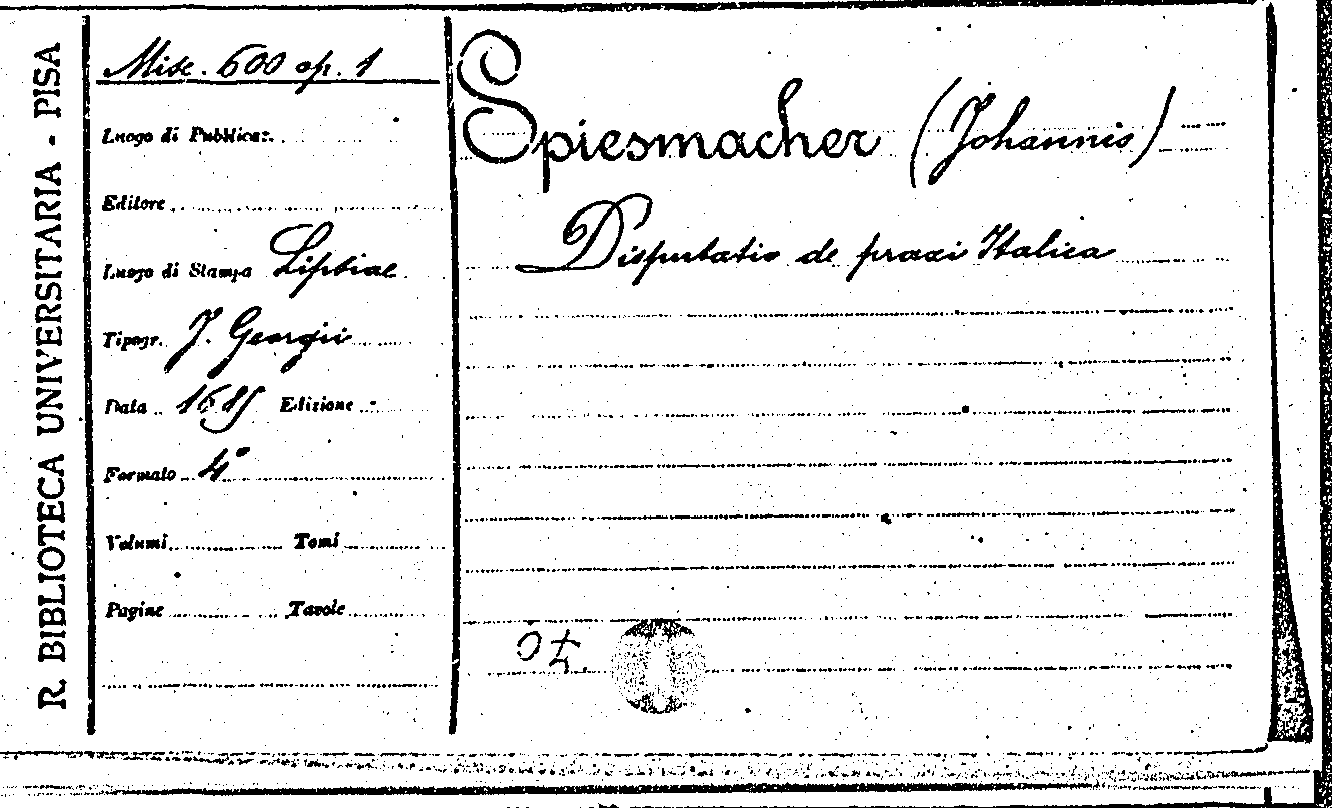 R. BIBLIOTECA UNIVERSITARIA - PISA
Misc. 600 op. 1
Luogo di Pubblicaz.
Editore
Luogo di Stampa Lipsiae
Tipogr. J. Georgii
Data 1685 Edizione -
Formato 4°
Volumi Tomi
Pagine Tavole
Spiesmacher (Johannis)
Disputatio de praxi Italica